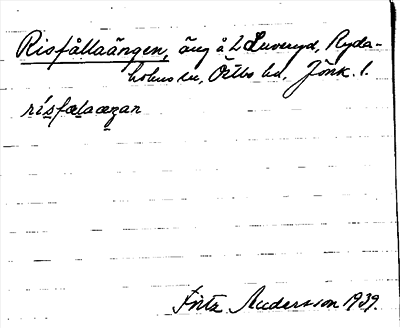 Risfållaängen, äng å L Luveryd, Ryda-
holms sn, Östbo hd, Jönk. l.
rísfælaæŋar
Fritz Andersson 1939.